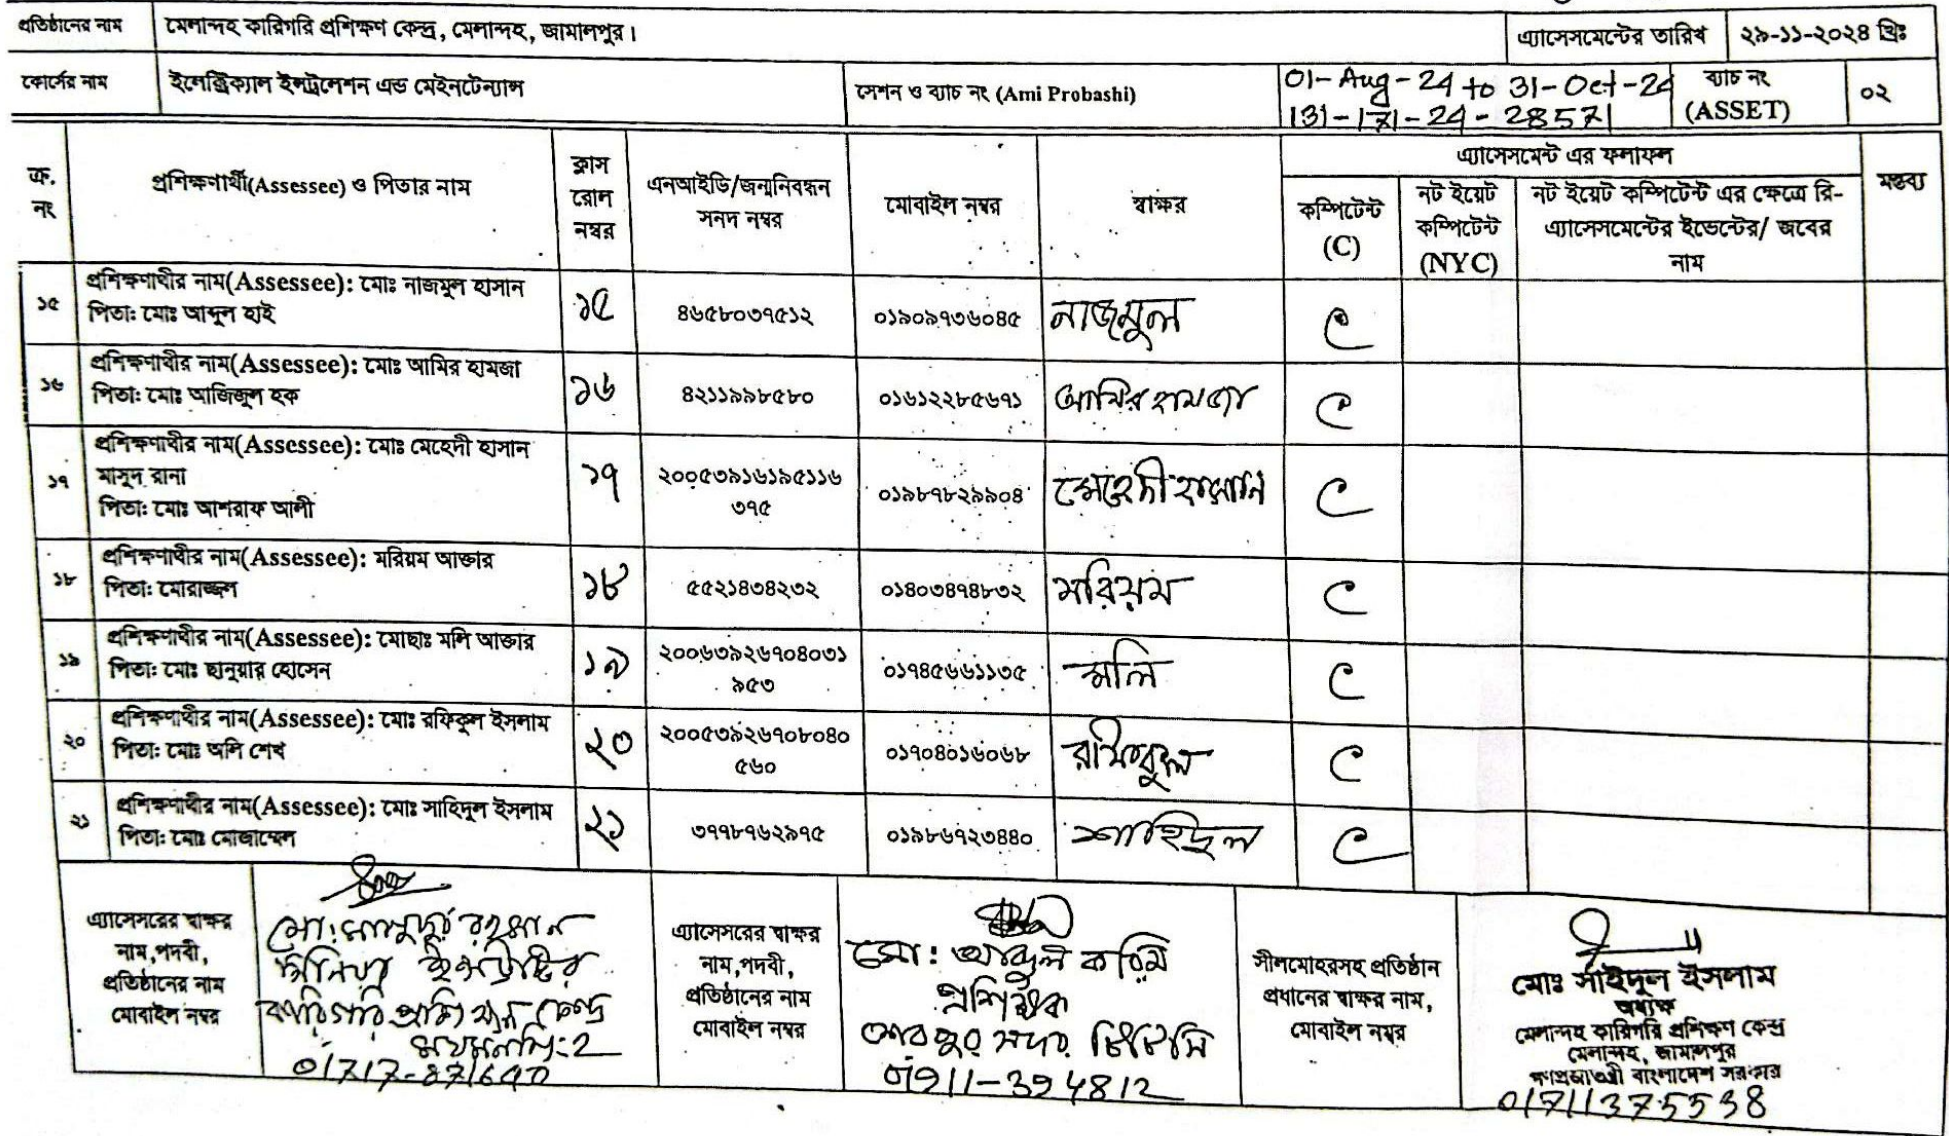 প্রতিষ্ঠানের নাম মেলান্দহ কারিগরি প্রশিক্ষণ কেন্দ্র, মেলান্দহ, জামালপুর। এ্যাসেসমেন্টের তারিখ ২৯-১১-২০২৪ খ্রিঃ
কোর্সের নাম ইলেক্ট্রিক্যাল ইন্সট্রলেশন এন্ড মেইনটেন্যান্স সেশন ও ব্যাচ নং (Ami Probashi) 01-Aug-24 to 31-Oct-24 ব্যাচ নং ০২
131-171-24-28571 (ASSET)
ক্র. নং
প্রশিক্ষণার্থী(Assessee) ও পিতার নাম
ক্লাস রোল নম্বর
এনআইডি/জন্মনিবন্ধন সনদ নম্বর
মোবাইল নম্বর
স্বাক্ষর
এ্যাসেসমেন্ট এর ফলাফল
কম্পিটেন্ট (C)
নট ইয়েট কম্পিটেন্ট (NYC)
নট ইয়েট কম্পিটেন্ট এর ক্ষেত্রে রি-এ্যাসেসমেন্টের ইভেন্টের/ জবের নাম
মন্তব্য
১৫ প্রশিক্ষণার্থীর নাম(Assessee): মোঃ নাজমুল হাসান ১৫ ৪৬৫৮০৩৭৫১২ ০১৯০৯৭৩৬০৪৫ নাজমুল C
পিতাঃ মোঃ আব্দুল হাই
১৬ প্রশিক্ষণার্থীর নাম(Assessee): মোঃ আমির হামজা ১৬ ৪২১১৯৯৮৫৮০ ০১৬১২২৮৫৬৭১ আমির হামজা C
পিতাঃ মোঃ আজিজুল হক
১৭ প্রশিক্ষণার্থীর নাম(Assessee): মোঃ মেহেদী হাসান ১৭ ২০০৫৩৯১৬১৯৫১১৬ ০১৯৮৭৮২৯৯০৪ মেহেদী হাসান C
মাসুদ রানা ৩৭৫
পিতাঃ মোঃ আশরাফ আলী
১৮ প্রশিক্ষণার্থীর নাম(Assessee): মরিয়ম আক্তার ১৮ ৫৫২১৪৩৪২৩২ ০১৪০৩৪৭৪৮৩২ মরিয়ম C
পিতাঃ মোরাজ্জল
১৯ প্রশিক্ষণার্থীর নাম(Assessee): মোছাঃ মলি আক্তার ১৯ ২০০৬৩৯২৬৭০৪০৩১ ০১৭৪৫৬৬১১৩৫ মলি C
পিতাঃ মোঃ ছানুয়ার হোসেন ৯৫৩
২০ প্রশিক্ষণার্থীর নাম(Assessee): মোঃ রফিকুল ইসলাম ২০ ২০০৫৩৯২৬৭০৮০৪০ ০১৭০৪০১৬০৬৮ রফিকুল C
পিতাঃ মোঃ অলি শেখ ৫৬০
২১ প্রশিক্ষণার্থীর নাম(Assessee): মোঃ সাহিদুল ইসলাম ২১ ৩৭৭৮৭৬২৯৭৫ ০১৯৮৬৭২৩৪৪০ শাহিদুল C
পিতাঃ মোঃ মোজাম্মেল
এ্যাসেসরের স্বাক্ষর
নাম,পদবী,
প্রতিষ্ঠানের নাম
মোবাইল নম্বর
মো: মাসুদুর রহমান
সিনিয়র ইন্সট্রাক্টর
কারিগরি প্রশিক্ষণ কেন্দ্র
এ্যাসেসরের স্বাক্ষর
নাম,পদবী,
প্রতিষ্ঠানের নাম
মোবাইল নম্বর
মো: আব্দুল করিম
প্রশিক্ষক
সদর টিটিসি
01911-394812
সীলমোহরসহ প্রতিষ্ঠান
প্রধানের স্বাক্ষর নাম,
মোবাইল নম্বর
মোঃ সাইদুল ইসলাম
অধ্যক্ষ
মেলান্দহ কারিগরি প্রশিক্ষণ কেন্দ্র
মেলান্দহ, জামালপুর
গণপ্রজাতন্ত্রী বাংলাদেশ সরকার
01711375538